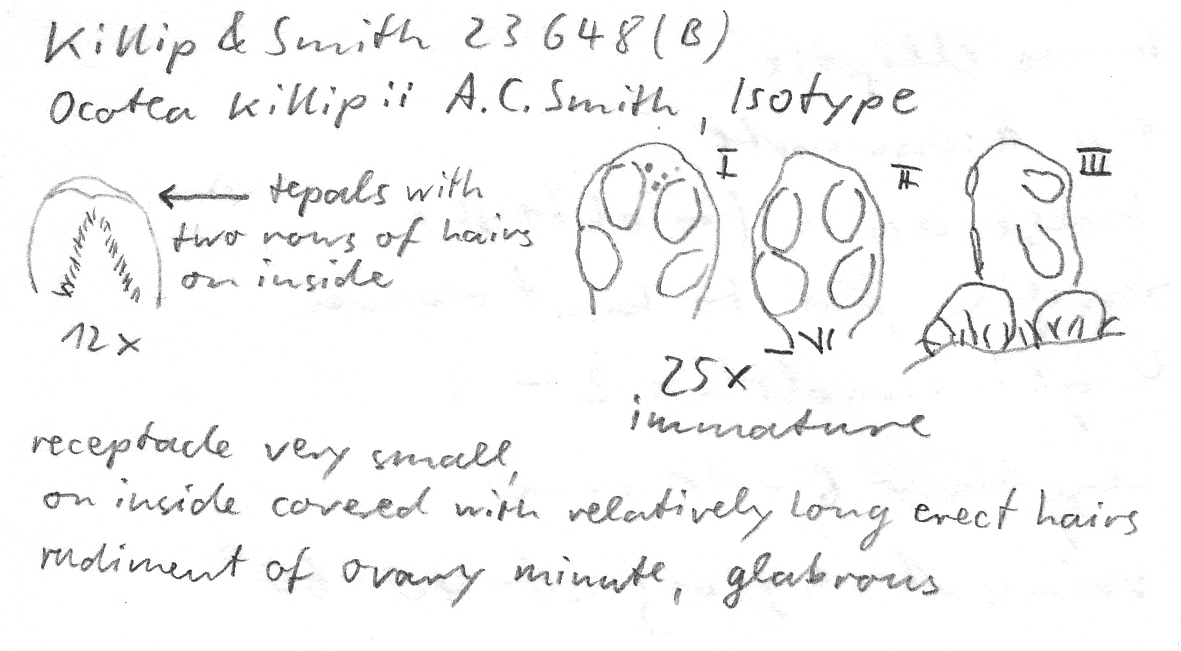 Killip & Smith 23648 (B)
Ocotea killipii A.C. Smith, Isotype
I
II
III
← tepals with
two rows of hairs
on inside
12x
25x
immature
receptacle very small,
on inside covered with relatively long erect hairs
rudiment of ovary minute, glabrous